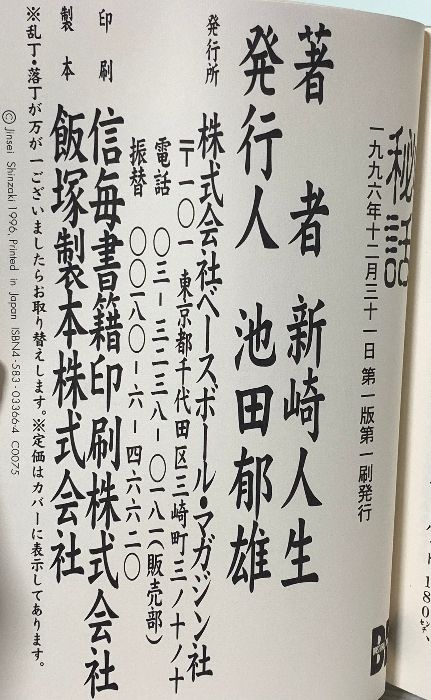 秘話
一九九六年十二月三十一日 第一版第一刷発行
著者 新崎人生
発行人 池田郁雄
発行所 株式会社ベースボール・マガジン社
〒一〇一 東京都千代田区三崎町三ノ十ノ十
電話 〇三−三二三八−〇一八一(販売部)
振替 〇〇一八〇−六−四六六二〇
印刷 信毎書籍印刷株式会社
製本 飯塚製本株式会社
※乱丁・落丁が万が一ございましたらお取り替えします。※定価はカバーに表示してあります。
©Jinsei Shinzaki 1996, Printed in Japan ISBN4-583-033664 C0075